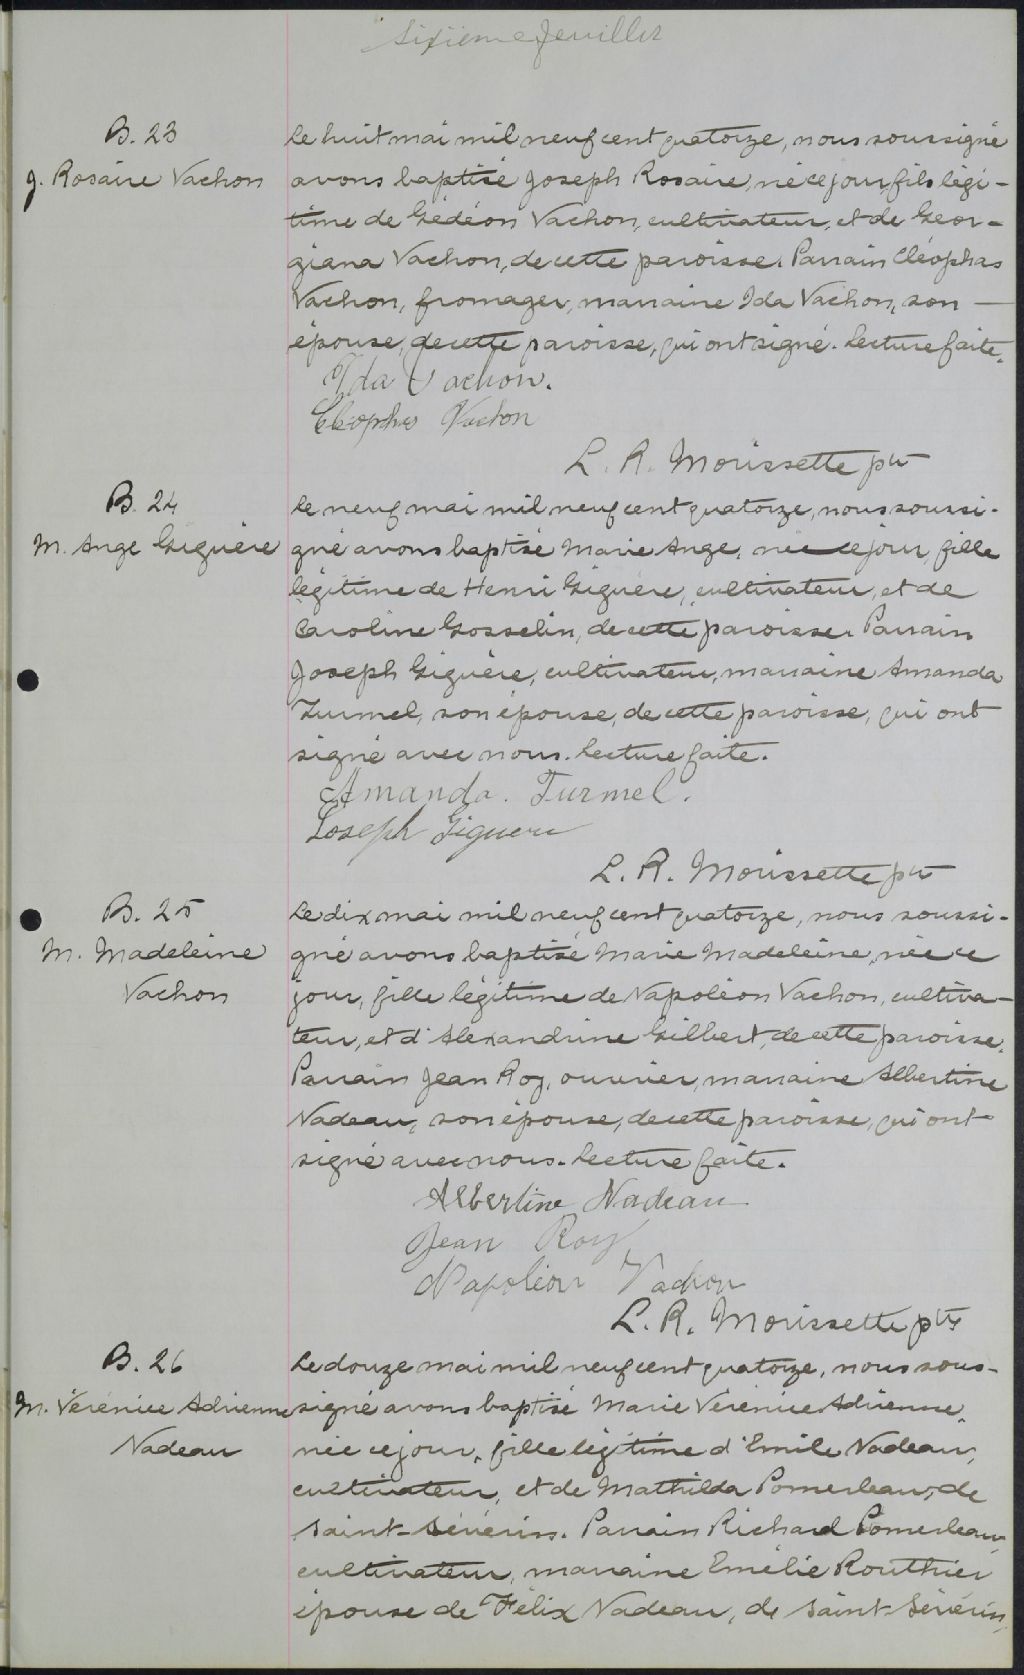 sixième feuillet
B. 23
J. Rosaire Vachon
Le huit mai mil neuf cent quatorze, nous soussigné
avons baptisé Joseph Rosaire, né ce jour, fils légi-
time de Gédéon Vachon, cultivateur, et de Geor-
giana Vachon, de cette paroisse. Parrain Cléophas
Vachon, fromager, marraine Ida Vachon, son
épouse, de cette paroisse, qui ont signé. Lecture faite.
Ida Vachon.
Cléophas Vachon
L. R. Morissette ptre
B. 24
M. Ange Giguère
Le neuf mai mil neuf cent quatorze, nous soussi-
gné avons baptisé Marie Ange, née ce jour, fille
légitime de Henri Giguère, cultivateur, et de
Caroline Gosselin, de cette paroisse. Parrain
Joseph Giguère, cultivateur, marraine Amanda
Turmel, son épouse, de cette paroisse, qui ont
signé avec nous. Lecture faite.
Amanda. Turmel.
Joseph Giguere
L. R. Morissette ptre
B. 25
M. Madeleine
Vachon
Le dix mai mil neuf cent quatorze, nous soussi-
gné avons baptisé Marie Madeleine, née ce
jour, fille légitime de Napoléon Vachon, cultiva-
teur, et d'Alexandrine Gilbert, de cette paroisse.
Parrain Jean Roy, ouvrier, marraine Albertine
Nadeau, son épouse, de cette paroisse, qui ont
signé avec nous. Lecture faite.
Albertine Nadeau
Jean Roy
Napoléon Vachon
L. R. Morissette ptre
B. 26
M. Vérénice Adrienne
Nadeau
Le douze mai mil neuf cent quatorze, nous sous-
signé avons baptisé Marie Vérénice Adrienne,
née ce jour, fille légitime d'Emile Nadeau,
cultivateur, et de Mathilda Pomerleau, de
Saint-Sévérin. Parrain Richard Pomerleau,
cultivateur, marraine Emélie Routhier
épouse de Félix Nadeau, de Saint-Sévérin,